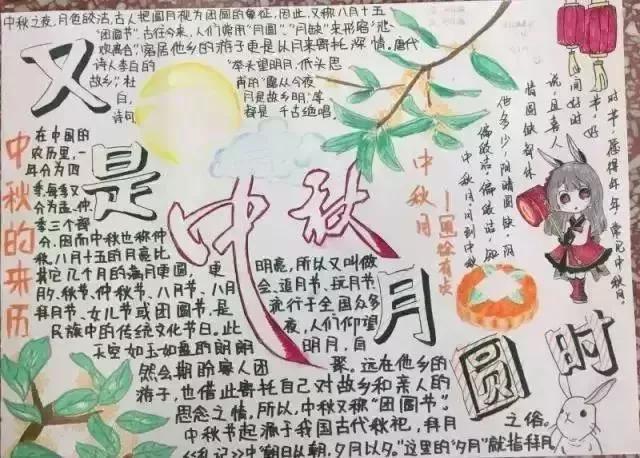 中秋之夜,月色皎洁,古人把圆月视为团圆的象征,因此,又称八月十五
"团圆节"。古往今来,人们常用"月圆""月缺"来形容"悲
欢离合",客居他乡的游子更是以月来寄托深情。唐代
诗人李白的"举头望明月,低头思
故乡",杜甫的"露从今夜
白,月是故乡明"等
诗句都是千古绝唱。
又
是
中秋
月
圆
时
中秋的来历
在中国的
农历里,一
年分为四
季,每季又
分为孟、仲、
季三个部
分,因而中秋也称仲
秋。八月十五的月亮比
其它几个月的满月更圆,更明亮,所以又叫做
月夕、秋节、仲秋节、八月节、八月会、追月节、玩月节、
拜月节、女儿节或团圆节,是流行于全国众多
民族中的传统文化节日。此夜,人们仰望
天空如玉如盘的朗朗明月,自
然会期盼家人团聚。远在他乡的
游子,也借此寄托自己对故乡和亲人的
思念之情。所以,中秋又称"团圆节"。
中秋节起源于我国古代秋祀,拜月之俗。
《礼记》中"朝日以朝,夕月以夕。"这里的"夕月"就指拜月
中秋月
中秋月。月到中秋
偏皎洁。偏皎洁,知
他多少,阴晴圆缺。阴
晴圆缺都休
说,且喜人
间好时
节。好
时节,愿得年年,常见中秋月。